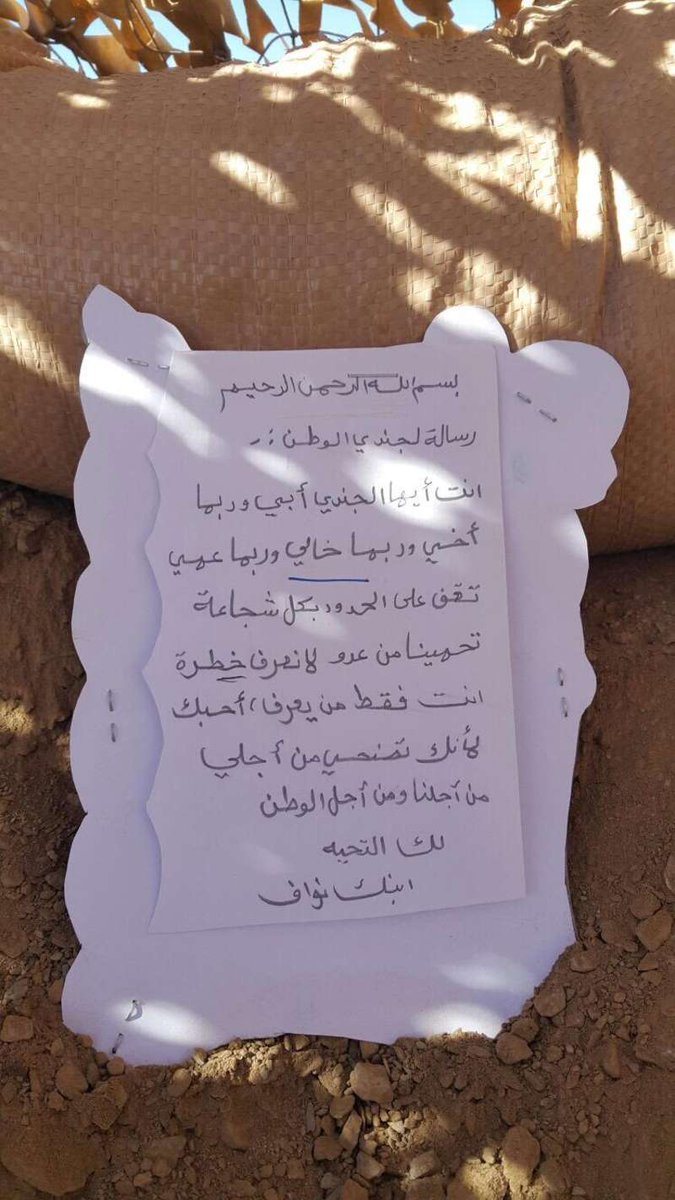 بسم الله الرحمن الرحيم
رسالة لجندي الوطن :-
انت أيها الجندي أبي وربما
أخي وربما خالي وربما عمي
تقف على الحدود بكل شجاعة
تحمينا من عدو لا نعرف خطرة
انت فقط من يعرف، أحبك
لأنك تضحي من أجلي
من أجلنا ومن أجل الوطن
لك التحيه
ابنك نواف